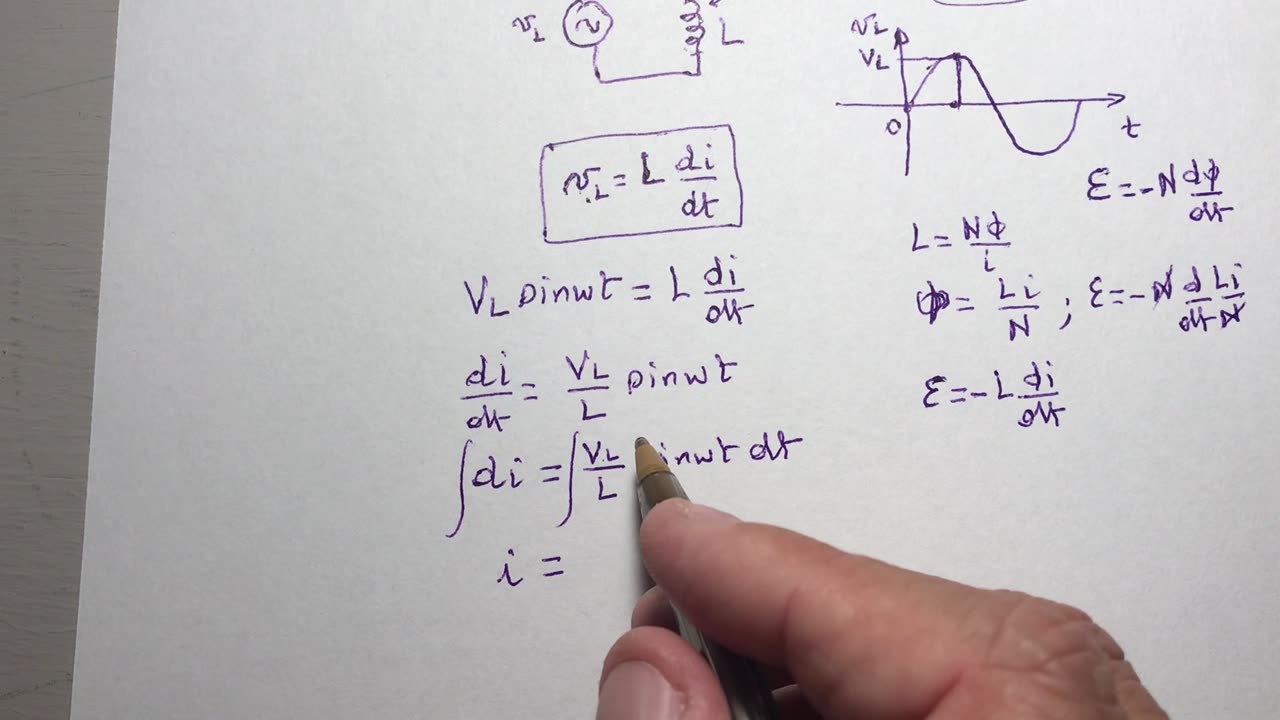 v_L ~ L
v_L
V_L
0
t
v_L = L di/dt
ε = -N dϕ/dt
L = Nϕ/i
V_L sinwt = L di/dt
ϕ = Li/N ; ε = -N d/dt Li/N
di/dt = V_L/L sinwt
ε = -L di/dt
∫di = ∫V_L/L inwt dt
i =